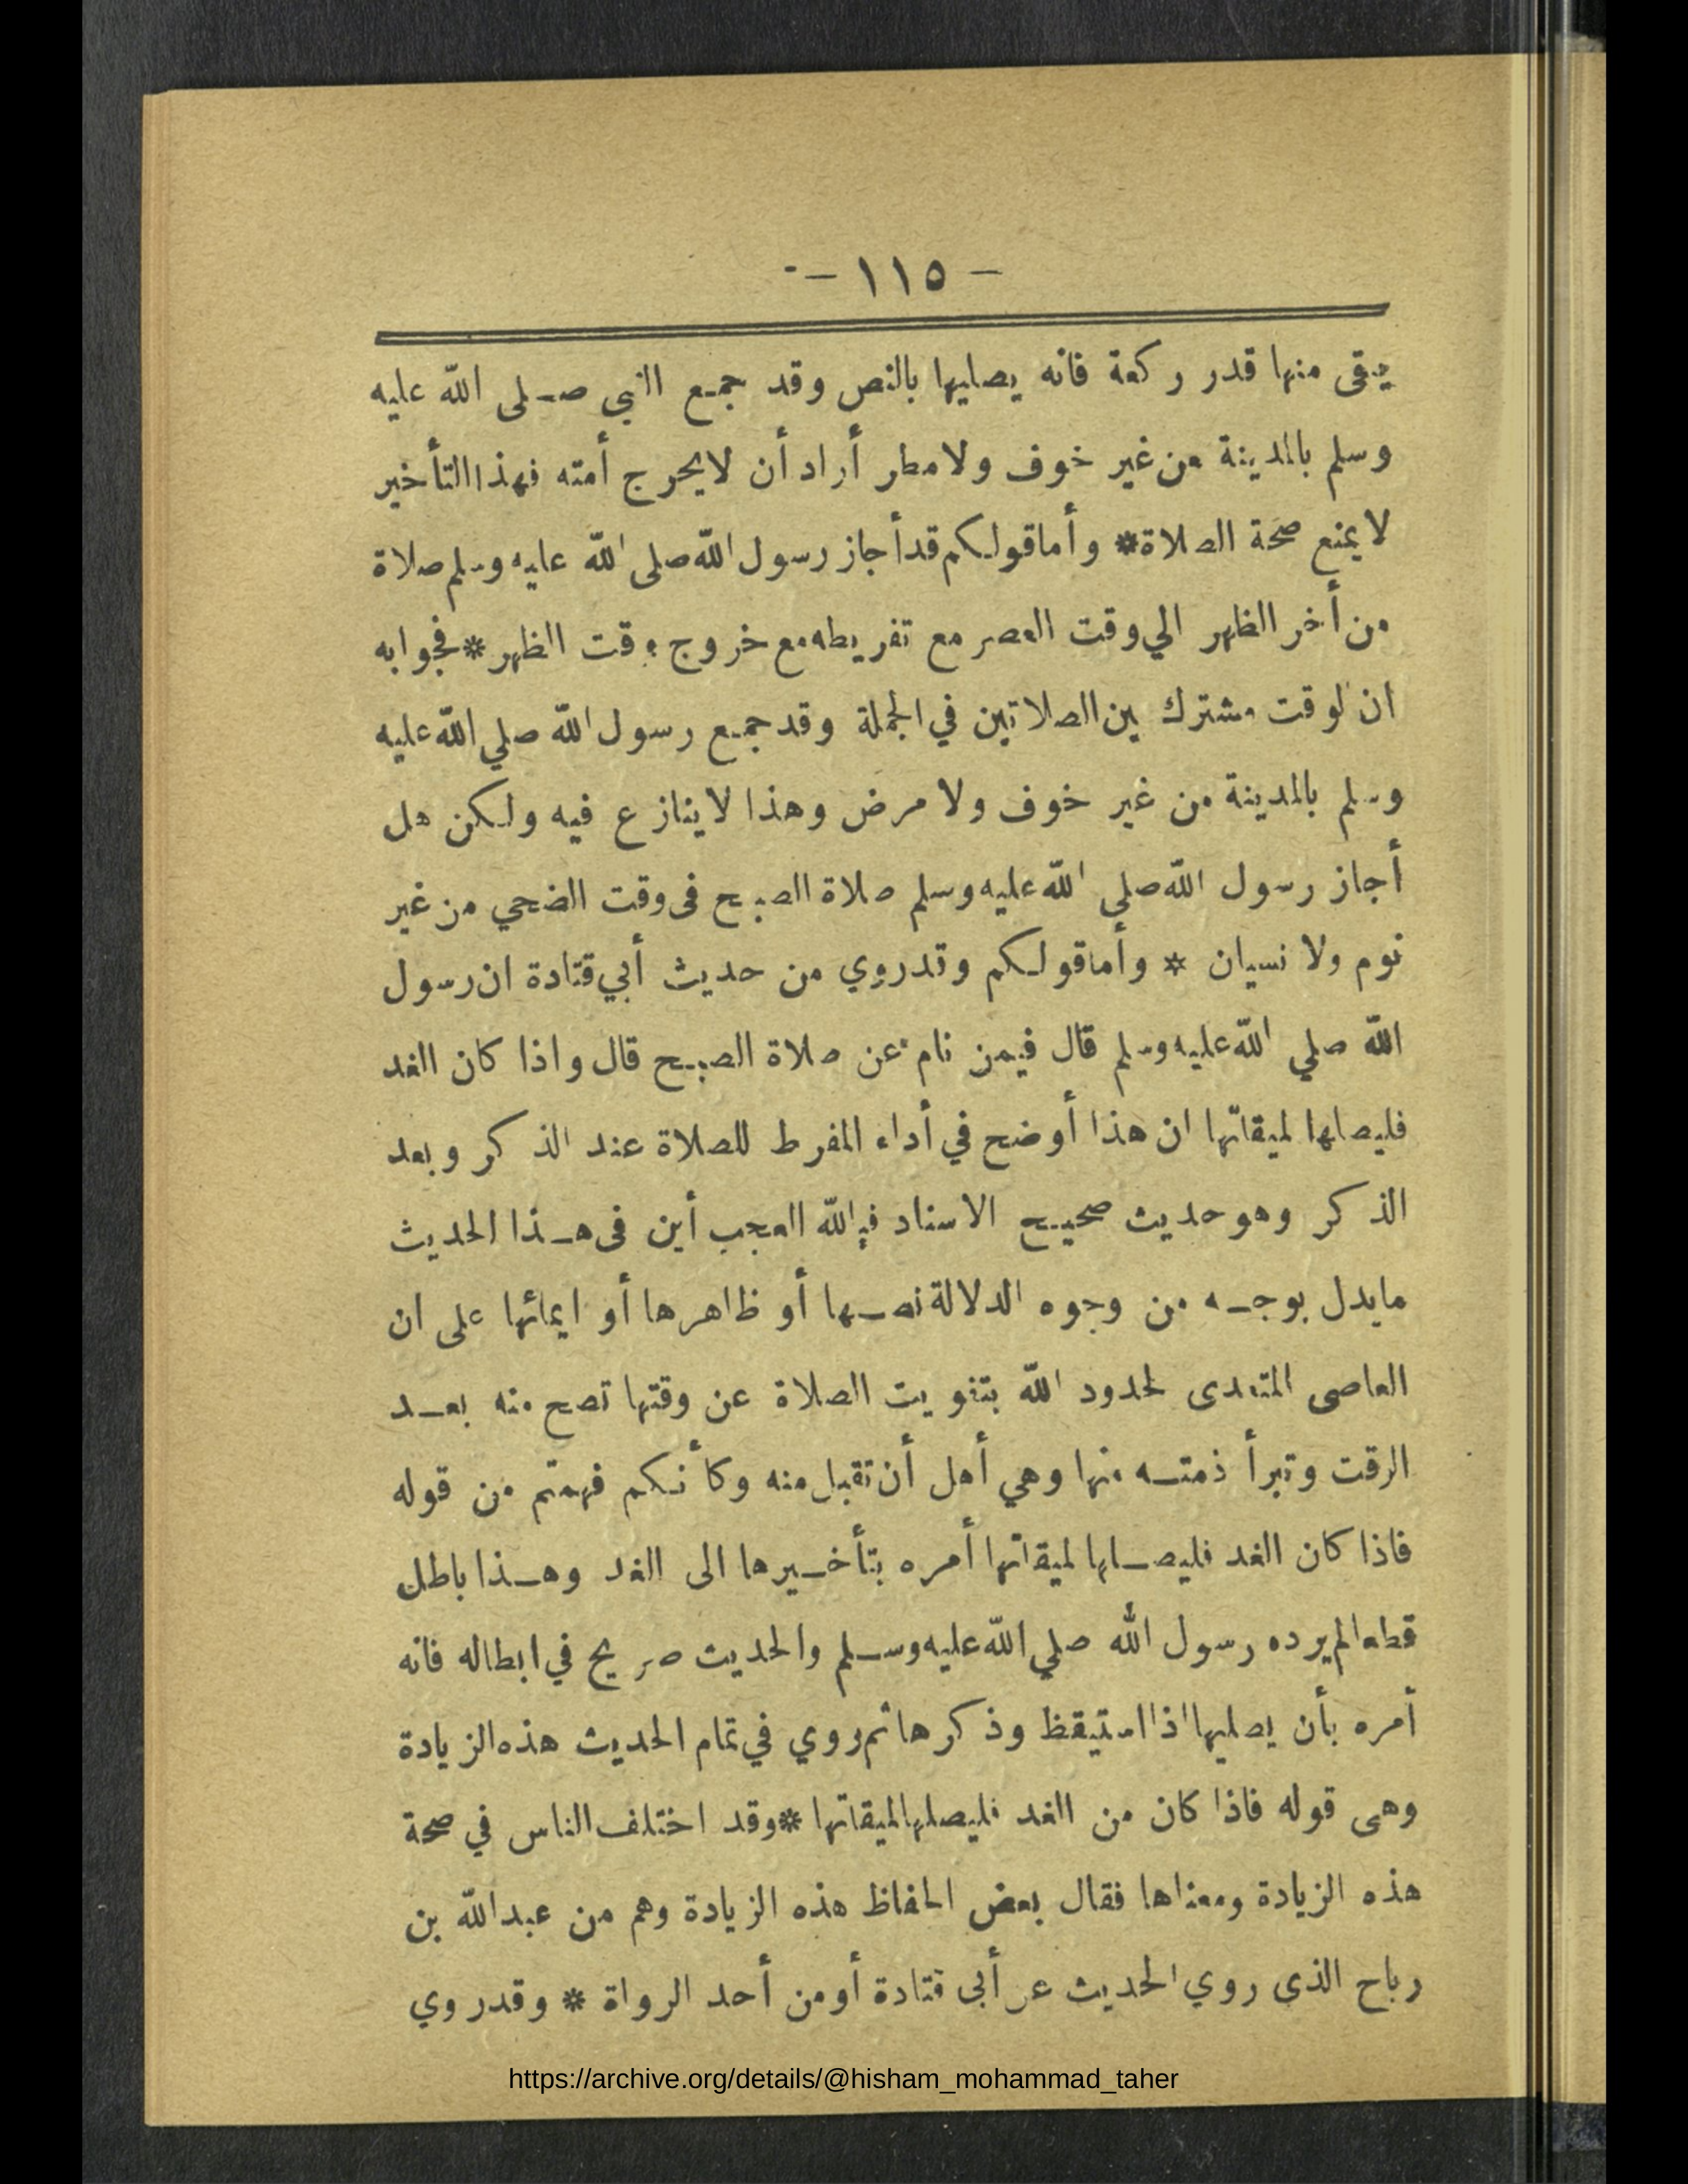 - ١١٥ -
يبقى منها قدر ركعة فانه يصليها بالنص وقد جمع النبي صلى الله عليه
وسلم بالمدينة من غير خوف ولا مطر أراد أن لا يحرج أمته فهذا التأخير
لا يمنع صحة الصلاة* وأما قولكم قد أجاز رسول الله صلى الله عليه وسلم صلاة
من أخر الظهر الي وقت العصر مع تفريطه مع خروج وقت الظهر * فجوابه
ان لوقت مشترك بين الصلاتين في الجملة وقد جمع رسول الله صلي الله عليه
وسلم بالمدينة من غير خوف ولا مرض وهذا لا ينازع فيه ولكن هل
أجاز رسول الله صلي الله عليه وسلم صلاة الصبح فى وقت الضحي من غير
نوم ولا نسيان * وأما قولكم وقد روي من حديث أبي قتادة ان رسول
الله صلي الله عليه وسلم قال فيمن نام عن صلاة الصبح قال واذا كان الغد
فليصلها لميقاتها ان هذا أوضح في أداء المفرط للصلاة عند الذكر وبعد
الذكر وهو حديث صحيح الاسناد فيالله العجب أين فى هذا الحديث
مايدل بوجه من وجوه الدلالة نصها أو ظاهرها أو ايمائها على ان
العاصى المتعدى لحدود الله بتفويت الصلاة عن وقتها تصح منه بعد
الوقت وتبرأ ذمته منها وهي أهل أن تقبل منه وكأنكم فهمتم من قوله
فاذا كان الغد فليصلها لميقاتها أمره بتأخيرها الى الغد وهذا باطل
قطعا لم يرده رسول الله صلي الله عليه وسلم والحديث صريح في ابطاله فانه
أمره بأن يصليها اذا استيقظ وذكرها ثم روي في تمام الحديث هذه الزيادة
وهى قوله فاذا كان من الغد فليصلها لميقاتها * وقد اختلف الناس في صحة
هذه الزيادة ومعناها فقال بعض الحفاظ هذه الزيادة وهم من عبد الله بن
رباح الذى روي الحديث عن أبى قتادة أو من أحد الرواة * وقد روي
https://archive.org/details/@hisham_mohammad_taher